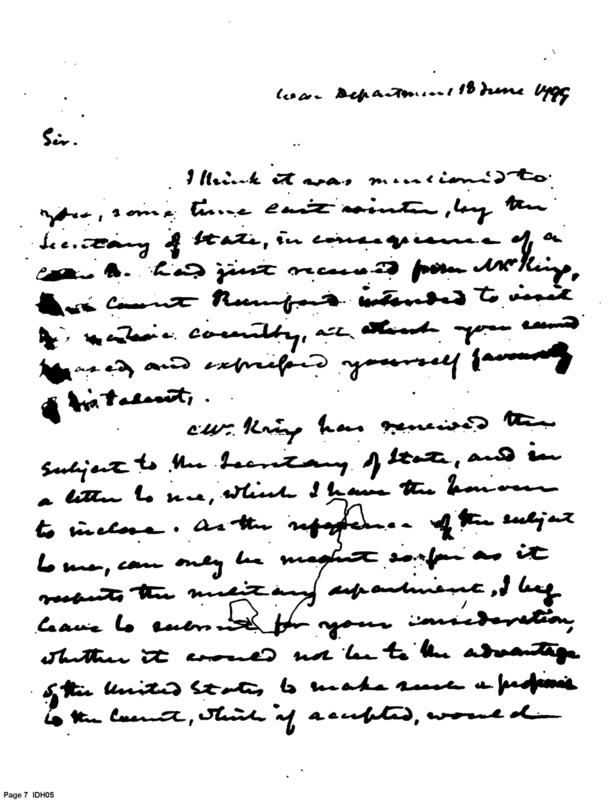 War Department 18 June 1799
Sir.
I think it was mentioned to
you, some time last winter, by the
Secretary of State, in consequence of a
had just received from Mr King,
Count Rumford intended to visit
his native country, at which you seemed
and expressed yourself favourably
of his talents.
Mr. King has renewed the
subject to the Secretary of State, and in
a letter to me, which I have the honour
to inclose. As the reference of the subject
to me, can only be meant so far as it
respects the military department, I beg
leave to submit for your consideration,
whether it would not be to the advantage
of the United States to make such a
to the Count, which if accepted, would
Page 7 IDH05